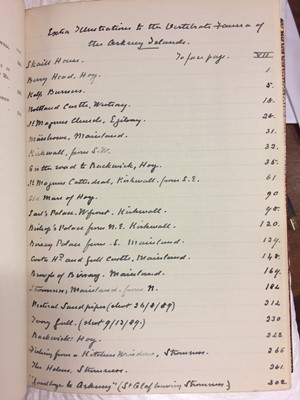 Extra Illustrations to the Vertebrate Fauna of
the Orkney Islands.
To face page.
Skaill House. VII
Berry Head, Hoy. 1.
Kelp Burners. 5.
Noltland Castle, Westray. 18.
St Magnus Church, Egilsay. 26.
Maeshowe, Mainland. 31.
Kirkwall, from S.W. 32.
On the road to Rackwick, Hoy. 35.
St Magnus Cathedral, Kirkwall, from S.E. 61
Old Man of Hoy. 90
Earl's Palace, W. front, Kirkwall. 98.
Bishop's Palace from N.E. Kirkwall 120.
Birsay Palace from S. Mainland. 124.
Mainland. 148.
Brough of Birsay, Mainland. 164.
Stromness, Mainland, from N. 186
Sandpiper (shot 26/8/89) 212
Ivory Gull. (shot 9/12/89.) 230
Rackwick, Hoy. 228
Fishing from a Kitchen Window, Stromness. 266
The Holms, Stromness. 261
Orkney" (St Olaf leaving Stromness) 302